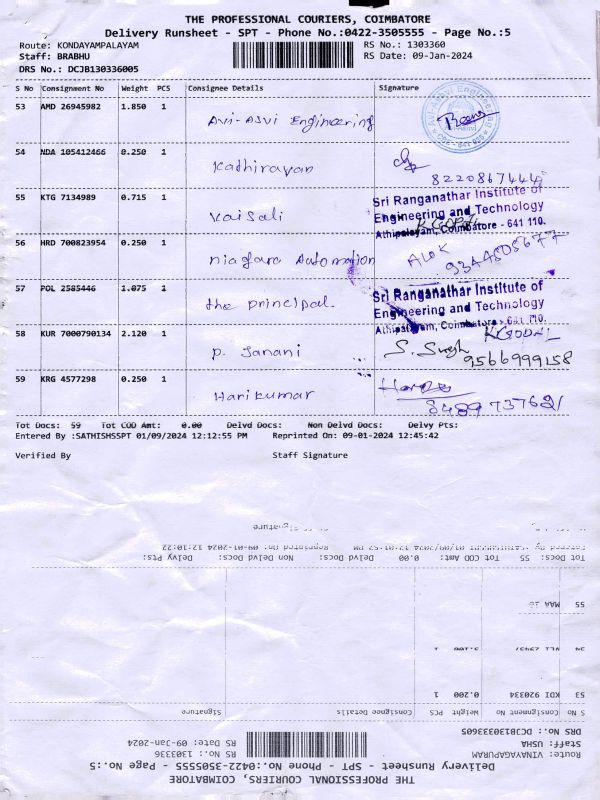 THE PROFESSIONAL COURIERS, COIMBATORE
Delivery Runsheet - SPT - Phone No.:0422-3505555 - Page No.:5
Route: KONDAYAMPALAYAM RS No.: 1303360
Staff: BRABHU RS Date: 09-Jan-2024
DRS No.: DCJB130336005
S No Consignment No Weight PCS Consignee Details Signature
53 AMD 26945982 1.850 1 Avi-Asvi Engineering
54 NDA 105412466 0.250 1 Kathiravan
8220867444
55 KTG 7134989 0.715 1 Vaisali
Sri Ranganathar Institute of
Engineering and Technology
Athipalayam, Coimbatore - 641 110.
K GOPAL
56 HRD 700823954 0.250 1 niagara Automation
Alok
9344808677
57 POL 2585446 1.075 1 the principal
Sri Ranganathar Institute of
Engineering and Technology
Athipalayam, Coimbatore - 641 110.
K GOPAL
58 KUR 7000790134 2.120 1 P. Janani
S. Singh
9566999158
59 KRG 4577298 0.250 1 Harikumar
8489737621
Tot Docs: 59 Tot COD Amt: 0.00 Delvd Docs: Non Delvd Docs: Delvy Pts:
Entered By :SATHISHSSPT 01/09/2024 12:12:55 PM Reprinted On: 09-01-2024 12:45:42
Verified By Staff Signature
THE PROFESSIONAL COURIERS, COIMBATORE
Delivery Runsheet - SPT - Phone No.:0422-3505555 - Page No.:5
Route: VINAYAGAPURAM RS No.: 1303336
Staff: USHA RS Date: 09-Jan-2024
DRS No.: DCJB130333605
S No Consignment No Weight PCS Consignee Details Signature
53 KDI 920334 0.200 1
55 MAA
Tot Docs: 55 Tot COD Amt: 0.00 Delvd Docs: Non Delvd Docs: Delvy Pts:
Reprinted On: 09-01-2024 12:10:22